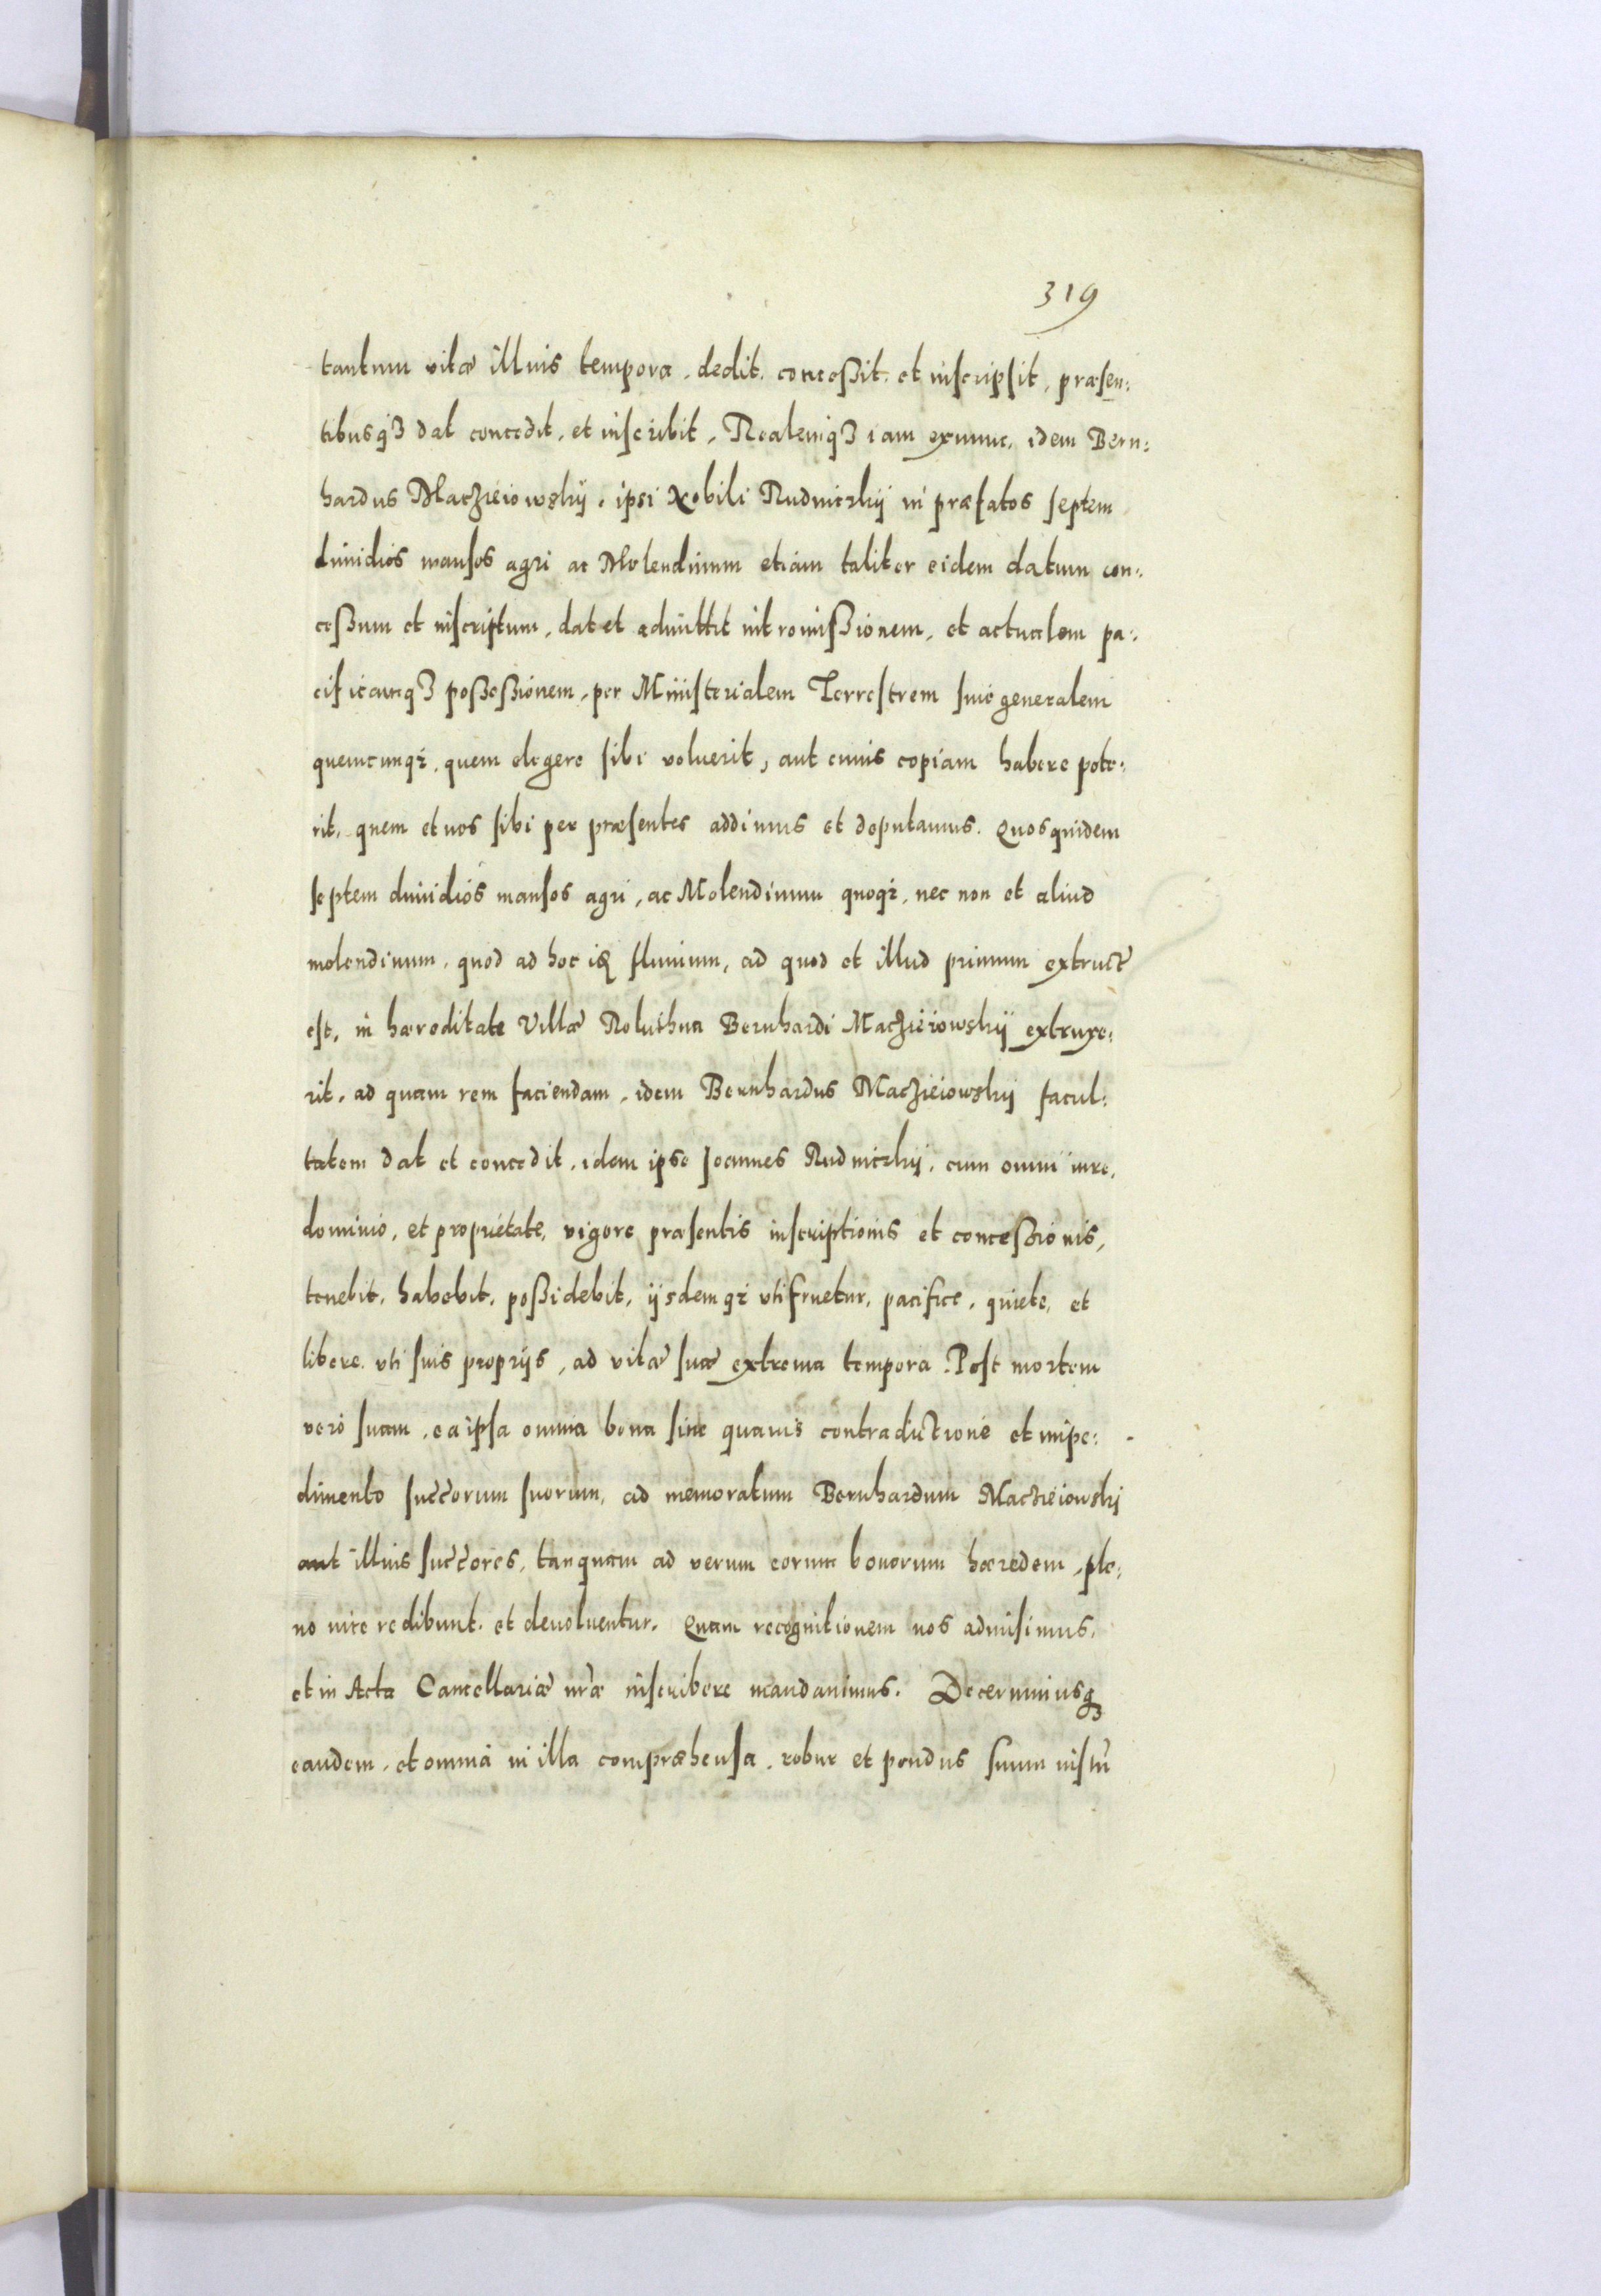 319
tantum vitæ illius tempora, dedit, concessit, et inscripsit, præsen:
tibusqȝ dat concedit, et inscribit, Realemqȝ iam exnunc, idem Bern:
hardus Maczieiowskij, ipsi Nobili Rudniczkij in præfatos septem
dimidios mansos agri ac Molendinum etiam taliter eidem datum con:
cessum et inscriptum, dat et admittit intromissionem, et actualem pa:
cificamqȝ possessionem, per Ministerialem Terrestrem siue generalem
quemcunqȝ, quem elegere sibi voluerit, aut cuius copiam habere pote:
rit, quem et nos sibi per præsentes addimus et deputamus. Quosquidem
septem dimidios mansos agri, ac Molendinum quoqȝ, nec non et aliud
molendinum, quod ad hoc flumium, ad quod et illud primum extruct̃
est, in hæreditate Villæ Bernhardi Maczieiowskij extruxe:
rit, ad quam rem faciendam, idem Bernhardus Maczieiowskij facul:
tatem dat et concedit, idem ipse Joannes Rudniczkij, cum omni iure,
dominio, et proprietate, vigore præsentis inscriptionis et concessionis,
tenebit, habebit, possidebit, ijsdemqȝ vtifruetur, pacifice, quiete, et
libere, vti suis proprijs, ad vitæ suæ extrema tempora. Post mortem
vero suam, ea ipsa omnia bona sine quauis contradictione et impe:
dimento succ̃orum suorum, ad memoratum Bernhardum Maczieiowskj
aut illius succ̃ores, tanquam ad verum eorum bonorum hæredem, ple:
no iure redibunt, et deuoluentur. Quam recognitionem nos admisimus,
et in Acta Cancellariæ nr̃æ inscribere mandauimus. Decernimusqȝ
eandem, et omnia in illa compræhensa, robur et pondus suum iustũ